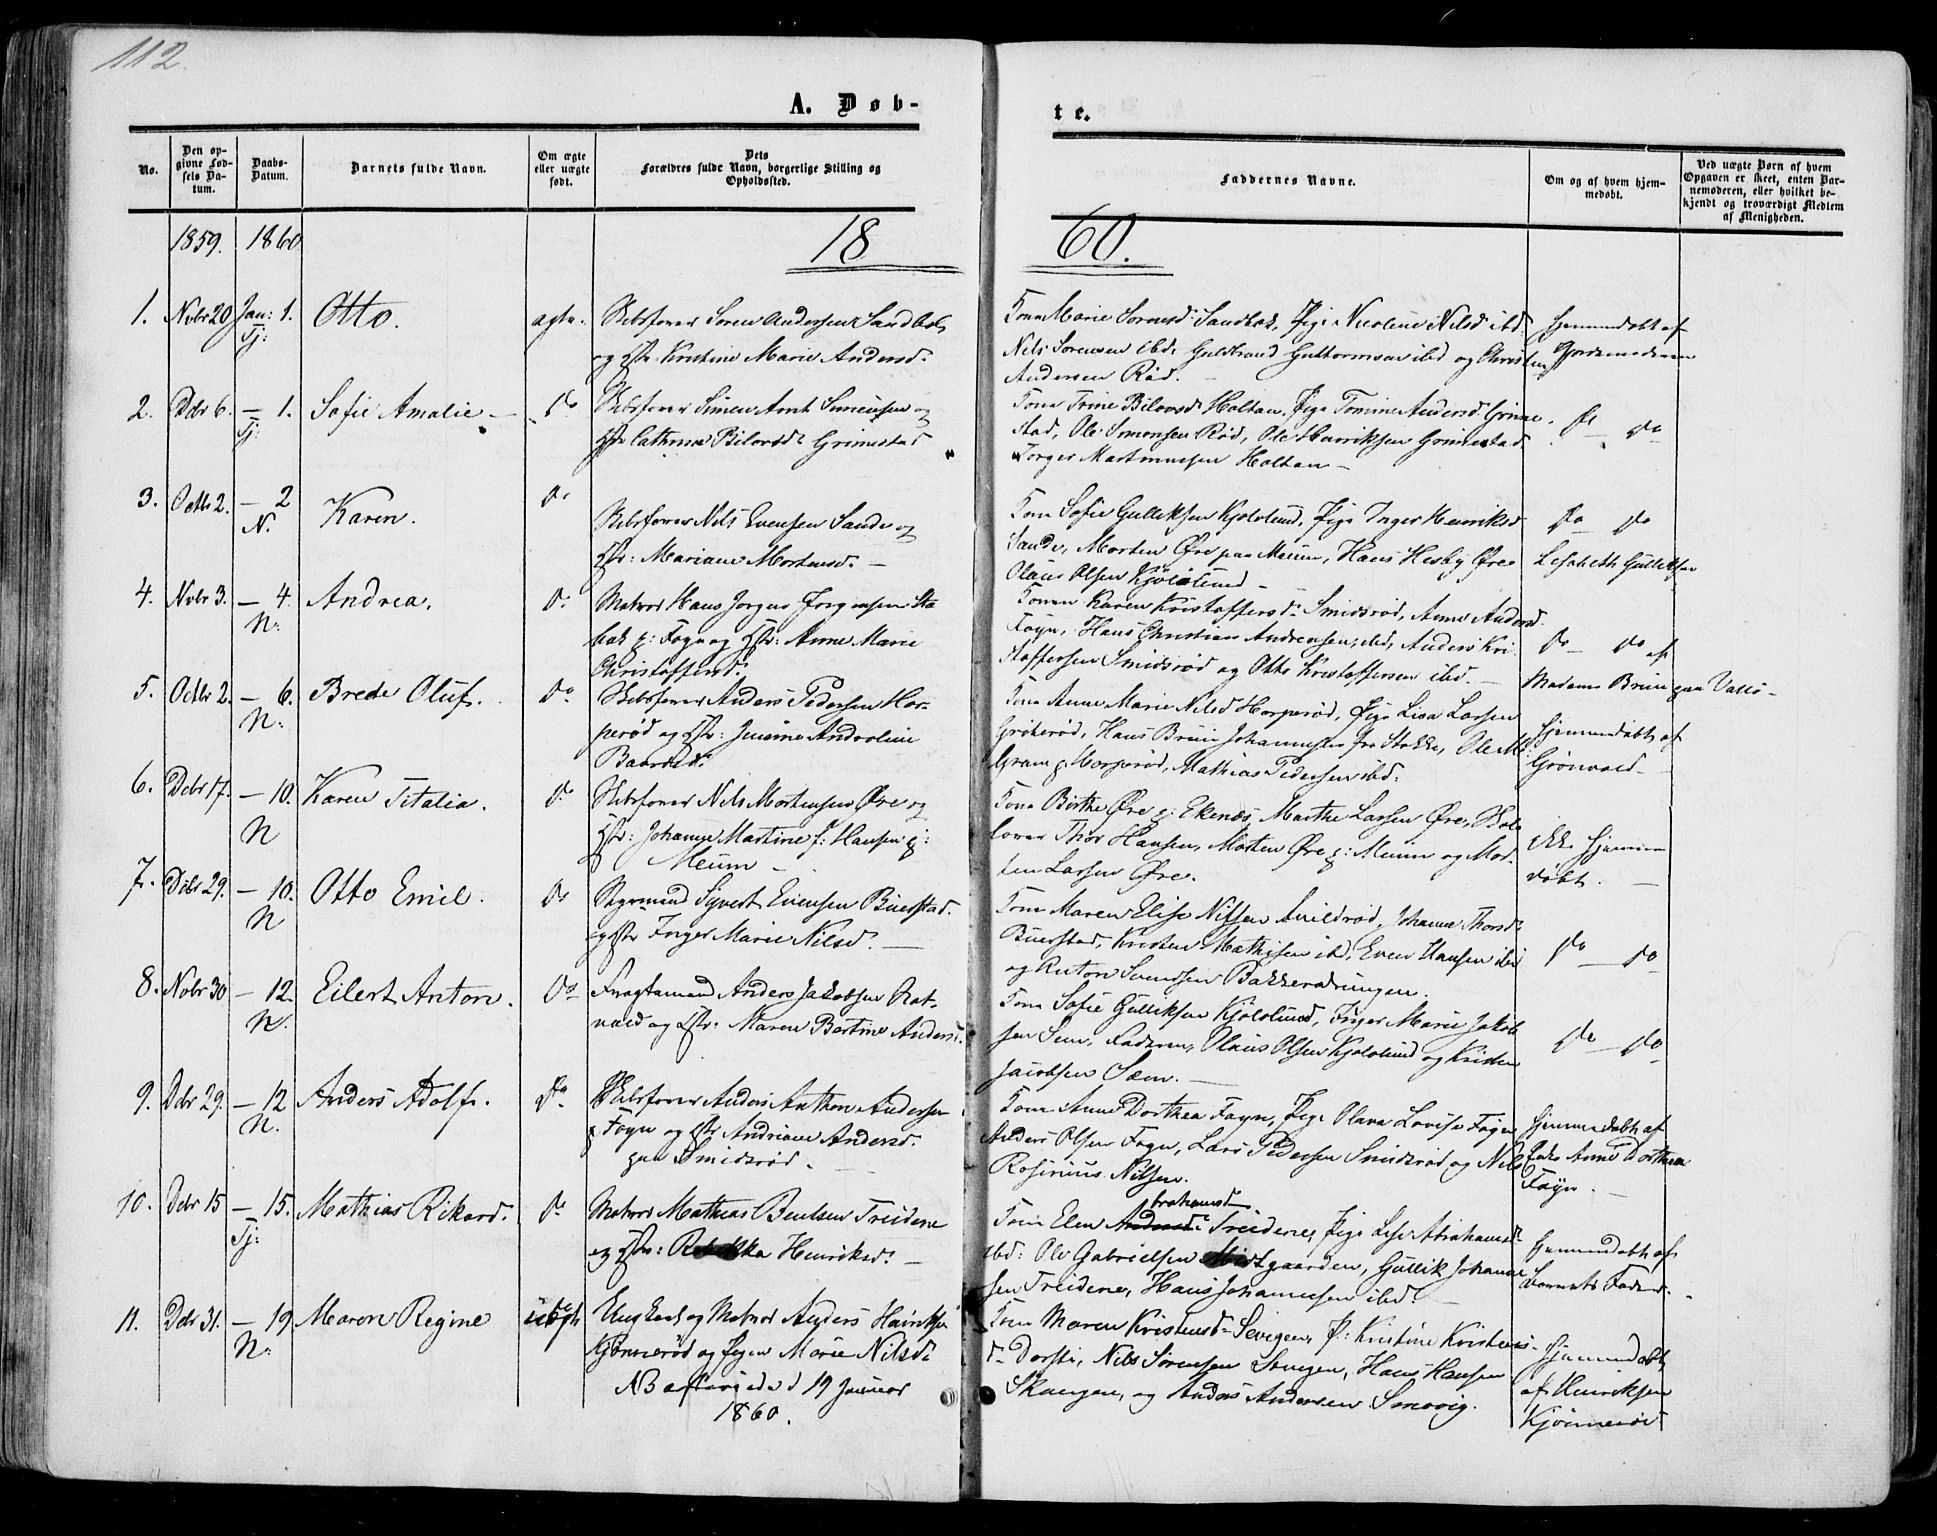 112.
A. Døb-
te.
No.
Den op-
givne Fød-
sels Da-
tum.
Daabs-
Datum.
Barnets fulde Navn.
Om ægte
eller uægte
født.
Dets
Forældres fulde Navn, borgerlige Stilling og
Opholdssted.
Faddernes Navne.
Om og af hvem hjem-
medøbt.
Ved uægte Børn af hvem
Opgaven er skeet, enten Bar-
nemoderen, eller hvilket be-
kjendt og troværdigt Medlem
af Menigheden.
1859. 1860
18 60.
1. Nvbr 20 Jan: 1. Otto. ægte.
Tj:
Skibsfører Søren Andersen Sandbæk
og Hstr: Kristine Marie Andersd:
Kone Marie Sørensd: Sandbæk, Pige Nicoline Nilsd ibd.
Nils Sørensen ibd. Guldbrand Guttormsen ibd og Christen
Andersen Rød.
Hjemmedøbt af
Gjordemoderen
2. Dcbr 6. — 1. Sofie Amalie — do
Tj:
Skibsfører Simen Arnt Simensen og
Hstr Cathrine Grimestad
Kone Trine Holtan, Pige Tomine Andersd: Grime-
stad, Ole Simonsen Rød, Ole Henriksen Grimestad
Torger Martinussen Holtan —
do — do
3. Octb 2. — 2 Karen. do
N.
Skibsfører Nils Evensen Sande og
Hstr: Mariane Mortensd. —
Kone Sofie Gulliksen Kjølslund, Pige Inger Henriksd
Sande, Morten Øre paa Meum, Hans Hesby Øre
Olaus Olsen Kjølslund —
do do
Lisabeth Gulliksen
4. Nvbr 3. — 4. Andrea. do
N:
Matros Hans Jørgen Jørgensen Sta
bæk p: Føyn og Hstr: Anne Marie
Christoffersd:
Konen Karen Kristoffersd: Smidsrød, Anne Andersd.
Føyn, Hans Christian Andreasen, ibd, Anders Kri
stoffersen Smidsrød og Otto Kristoffersen ibd. —
do — do af
Madame Bruun paa Vallø —
5. Octbr 2. — 6. Brede Oluf. do
N:
Skibsfører Anders Pedersen Hor-
perød og Hstr:
Kone Anne Marie Nilsd Horperød, Pige Lisa Larsen
Hans Bruun Johannesen fra Stokke, Ole M:
Gram p: Horperød, Mathias Pedersen ibd.
Hjemmedøbt af
Grønvold. —
6. Dcbr 17. — 10. Karen Titalia. do
N
Skibsfører Nils Mortensen Øre og
Hstr: Johanne Martine f: Hansen p:
Meum —
Kone Birthe Øre p: Ekenæs, Marthe Larsen Øre,
Thor Hansen, Morten Øre p: Meum og Mor-
ten Larsen Øre.
ikke hjemme
døbt. —
7. Dcbr 29. — 10. Otto Emil. do
N
Styrmand Syvert Evensen Buerstad.
og Hstr Inger Marie Nilsd. —
Kone Maren Elise Nilsen Johanne Thorsd:
Buerstad, Kristen Mathisen ibd, Even Hansen ibd
og Anton Svendsen
do — do
8. Nvbr 30 — 12. Eilert Anton. do
N.
Fragtemand Anders Jakobsen Rat-
vald og Hstr: Maren Bertine Andersd.
Kone Sofie Gulliksen Kjølslund, Inger Marie Jakob
sen Sem, Faderen, Olaus Olsen Kjølslund og Kristen
Jacobsen Sæm. —
do — do
9. Dcbr 29. — 12 Anders Adolf. do
N.
Skibsfører Anders Anthon Andersen
p Føyn og Hstr Andriane Andersd.
paa Smidsrød.
Kone Anne Dorthea Føyn, Pige Olava Lovise Føyn
Anders Olsen Føyn, Lars Pedersen Smidsrød og Nils
Rosinius Nilsen.
Hjemmedøbt af
Anne Dorthea
Føyn. —
10. Dcbr 15 — 15. Mathias Rikard. do
Tj:
Matros Mathias Bentsen Treidene
og Hstr: Rebekka Henriksd. —
brahamsd
Kone Elen Treidene, Pige Lise Abrahamsd
ibd: Ole Gabrielsen Midtgaarden, Gullik Johanne
sen Treidene, Hans Johannesen ibd. —
Hjemmedøbt af
Barnets Fader. —
11. Dcbr 31. — 19 Maren Regine uægte
N:
Ungkarl og Matros Anders Henriksen
Kjønnerød og Pigen Marie Nilsd:
NB 19 Januar
1860.
Kone Maren Kristensd: P: Kristine Kristens-
d: Nils Sørensen Hans Hansen
og Anders Andersen
Hjemmedøbt
af Henriksen
Kjønnerød